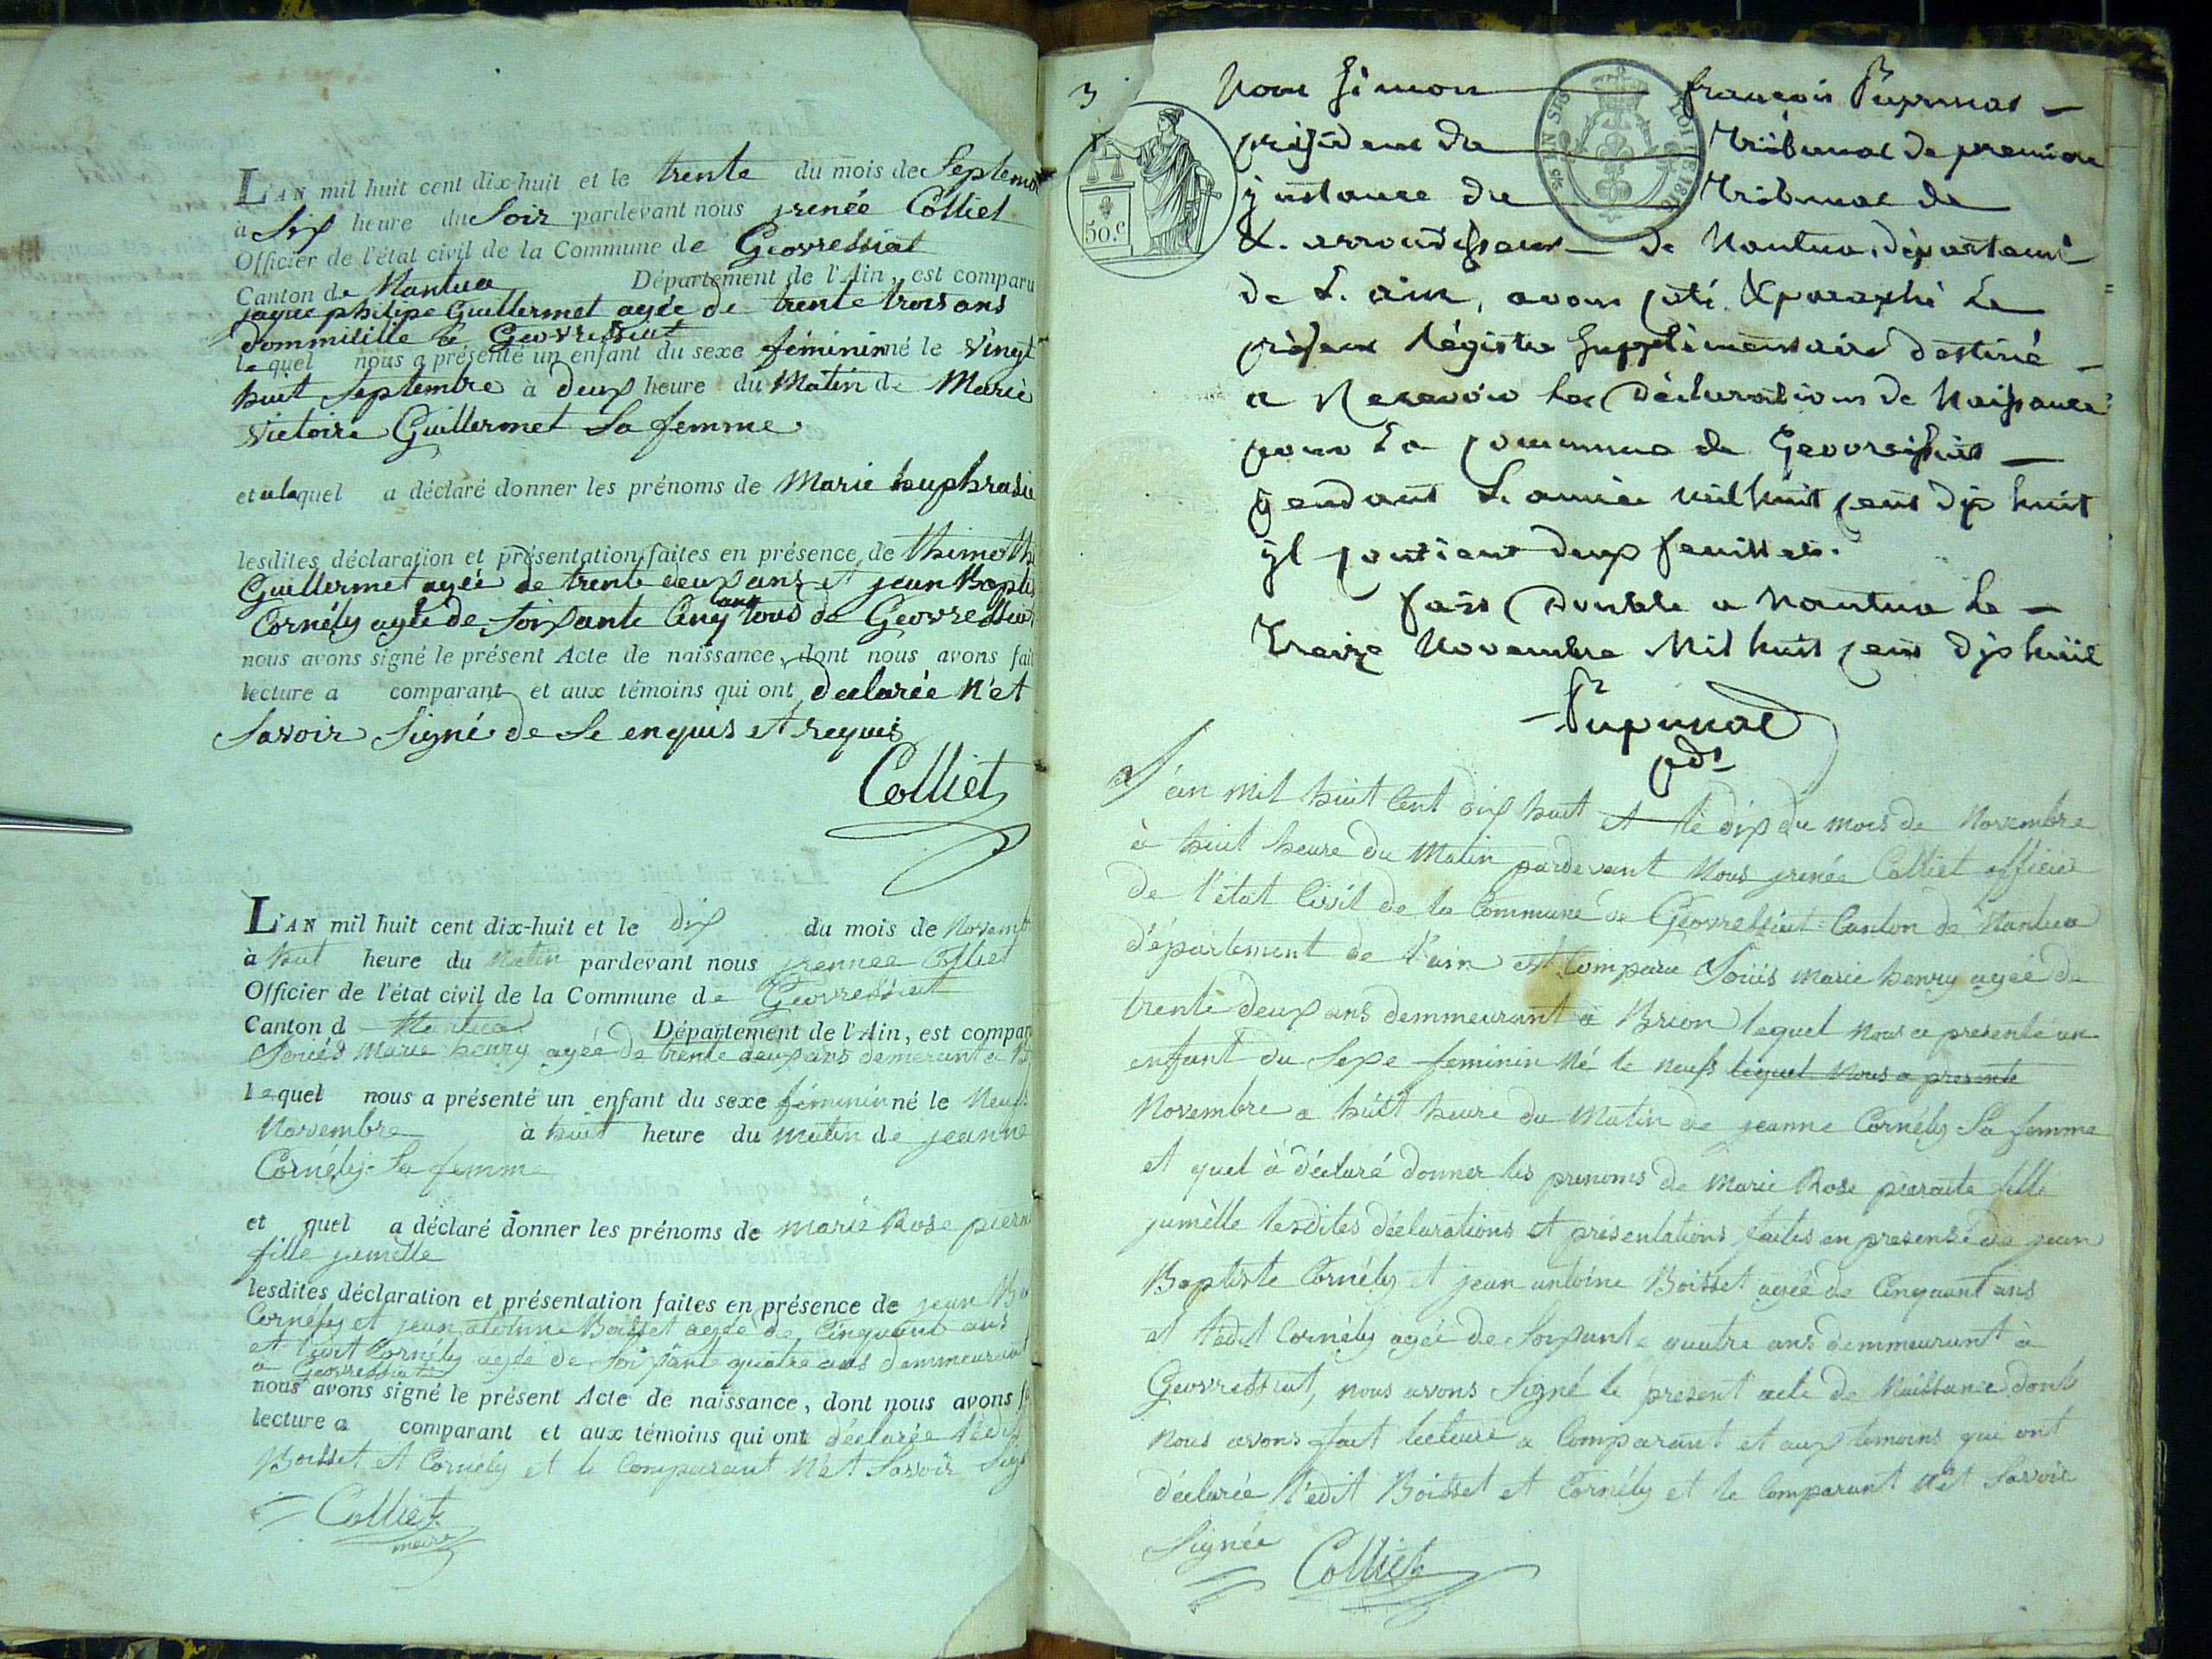 L'AN mil huit cent dix-huit et le trente du mois de Septemb
à Six heure du Soir pardevant nous jrenée Colliet
Officier de l'état civil de la Commune de Geovressiat
Canton de Nantua Département de l'Ain, est comparu
jaque philipe Guillermet agée de trente trois ans
dommicilie a Geovressiat
lequel nous a présenté un enfant du sexe féminin né le vingt
huit Septembre à deux heure du Matin de Marie
Victoire Guillermet Sa femme
et alaquel a déclaré donner les prénoms de Marie huphrasie
lesdites déclaration et présentation faites en présence de thimoth
Guillermet agée de trente deux ans et jean Baptis
Cornély agée de Soixante Cinq ans tous de Geovressiat
nous avons signé le présent Acte de naissance, dont nous avons fait
lecture a comparant et aux témoins qui ont declarée n'et
Savoir Signé de Se enquis et requis
Colliet
L'AN mil huit cent dix-huit et le dix du mois de Novemb
à huit heure du Matin pardevant nous jrennee Colliet
Officier de l'état civil de la Commune de Geovressiat
Canton d Nantua Département de l'Ain, est compar
Louis Marie henry agée de trente deux ans demerant a
lequel nous a présenté un enfant du sexe féminin né le Neufs
Novembre à huit heure du matin de jeanne
Cornély Sa femme
et quel a déclaré donner les prénoms de marie Rose pierr
fille jumelle
lesdites déclaration et présentation faites en présence de jean Ba
Cornély et jean antoine Boisset agée de Cinquant ans
et Cornely agée de Soixante quatre ans demmeurant
a Geovressiat
nous avons signé le présent Acte de naissance, dont nous avons f
lecture a comparant et aux témoins qui ont déclarée l'edit
Boisset et Cornély et le Comparant n'et Savoir Sign
Colliet
maire
3 Nous Simon françois Pupunat
président du tribunal de première
jnstance du tribunal de
L. arrondissem de Nantua, département
de L. ain, avons coté & paraphé Le
présent Régistre Supplémentaire destiné
a Recevoir les Déclarations de Naissance
pour La commune de Geovressiat
pendant L. année mil huit cent dix huit
jl contient deux feuillets.
fait Double a Nantua le
treize Novembre Mil huit cent dix huit
Pupunat
pdt
50.c
LOI 1816
L'an mil huit Cent dix huit et le dix du mois de Novembre
à huit heure du Matin pardevant Nous jrenée Colliet officier
de l'état Civil de la Commune de Geovressiat Canton de Nantua
département de l'ain est Comparu Louis Marie henry agée de
trente deux ans demmeurant a Brion lequel Nous a presenté un
enfant du Sexe feminin Né le neufs lequel Nous a presente
Novembre a huit heure du Matin de jeanne Cornély Sa femme
et quel à déclaré donner les prenoms de Marie Rose pierroite fille
jumelle lesdites déclarations et présentations faites en presense de jean
Baptiste Cornély et jean antoine Boisset agée de Cinquant ans
et l'edit Cornély agée de Soixante quatre ans demmeurant à
Geovressiat, nous avons Signé le present acte de Naissance dont
Nous avons fait lecture a Comparant et aux temoins qui ont
déclarée l'edit Boisset et Cornély et le Comparant n'et Savoir
Signée
Colliet